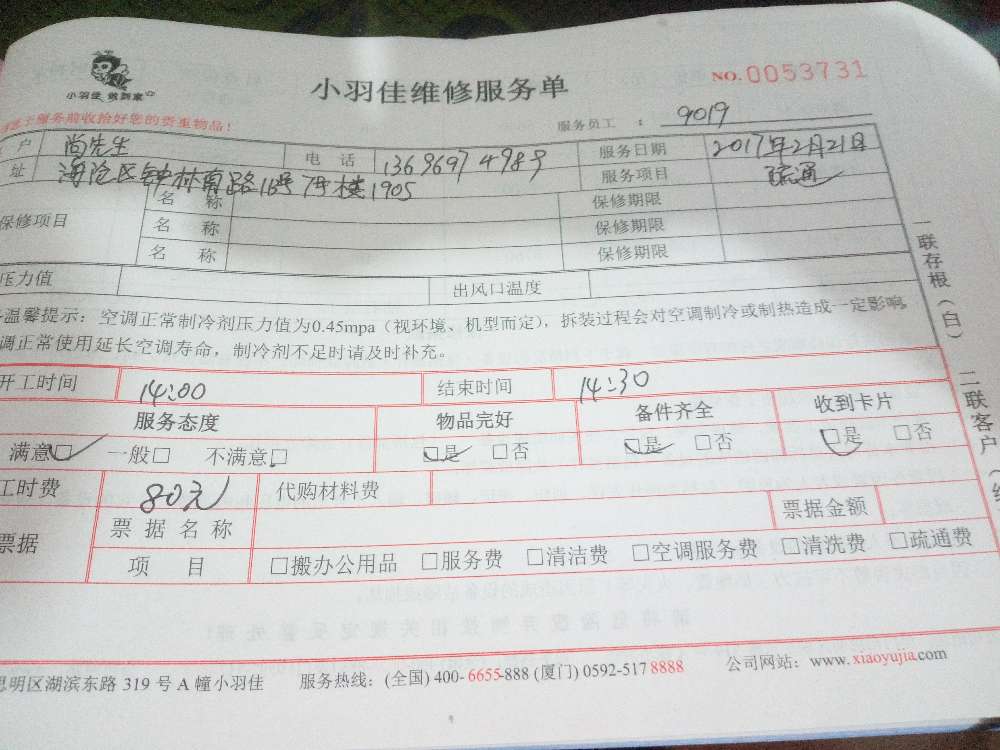 小羽佳 做到家
小羽佳维修服务单
NO.0053731
服务前收拾好您的贵重物品!
服务员工 : 9019
户 尚先生 电话 13696974989 服务日期 2017年2月21日
址 海沧区钟林南路16号7号楼1905 服务项目 疏通
保修项目 名称 保修期限
名称 保修期限
名称 保修期限
压力值 出风口温度
温馨提示：空调正常制冷剂压力值为0.45mpa（视环境、机型而定），拆装过程会对空调制冷或制热造成一定影响，
调正常使用延长空调寿命，制冷剂不足时请及时补充。
开工时间 14:00 结束时间 14:30
服务态度 物品完好 备件齐全 收到卡片
满意□ 一般□ 不满意□ □是 □否 □是 □否 □是 □否
工时费 80元 代购材料费
票据 票据名称 票据金额
项目 □搬办公用品 □服务费 □清洁费 □空调服务费 □清洗费 □疏通费
一联存根（白） 二联客户
思明区湖滨东路 319 号 A 幢小羽佳 服务热线：(全国) 400-6655-888 (厦门) 0592-5178888 公司网站：www.xiaoyujia.com